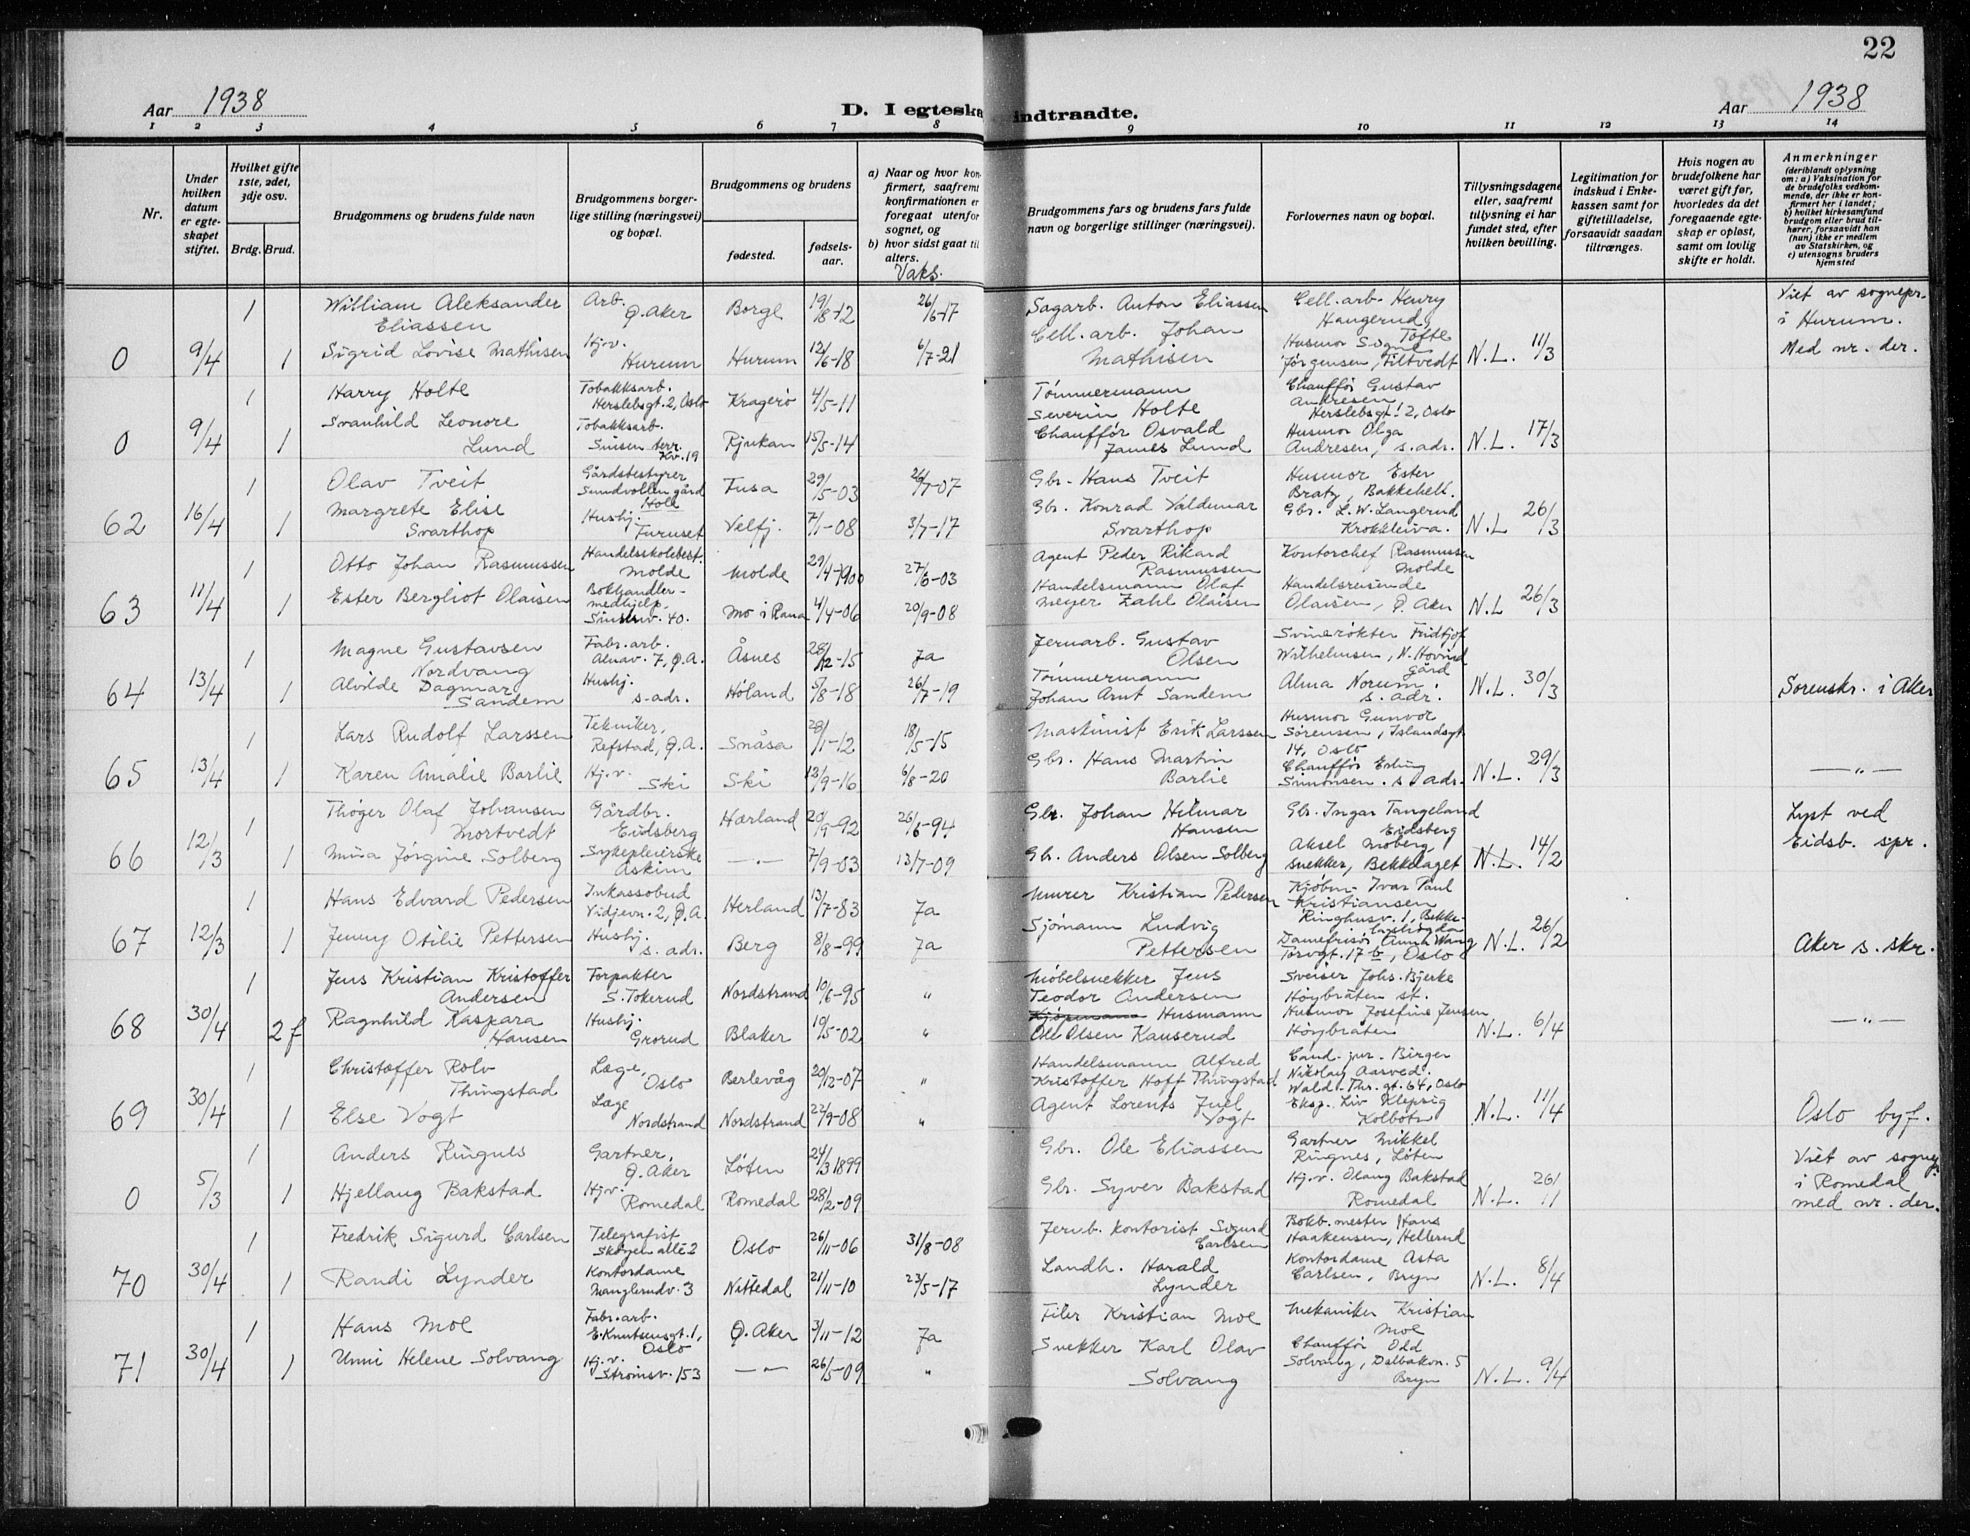 22
Aar 1938
D. I egteska
indtraadte.
Aar 1938
1 2 3 4 5 6 7 8 9 10 11 12 13 14
Nr.
Under hvilken datum er egteskapet stiftet.
Hvilket gifte 1ste, 2det, 3dje osv.
Brdg. Brud.
Brudgommens og brudens fulde navn
Brudgommens borgerlige stilling (næringsvei) og bopæl.
Brudgommens og brudens
fødested.
fødselsaar.
a) Naar og hvor konfirmert, saafremt konfirmationen er foregaat utenfor sognet, og
b) hvor sidst gaat til alters.
Vaks.
Brudgommens fars og brudens fars fulde navn og borgerlige stillinger (næringsvei).
Forlovernes navn og bopæl.
Tillysningsdagene eller, saafremt tillysning ei har fundet sted, efter hvilken bevilling.
Legitimation for indskud i Enkekassen samt for giftetilladelse, forsaavidt saadan tiltrænges.
Hvis nogen av brudefolkene har været gift før, hvorledes da det foregaaende egteskap er opløst, samt om lovlig skifte er holdt.
Anmerkninger
(deriblandt oplysning om: a) Vaksination for de brudefolks vedkommende, der ikke er konfirmert her i landet; b) hvilket kirkesamfund brudgom eller brud tilhører, forsaavidt han (hun) ikke er medlem av Statskirken, og c) utensogns bruders hjemsted
1 William Aleksander Eliassen Arb. Ø. Aker Borge 19/8-12 26/6-17 Sagarb. Anton Eliassen Cell.arb. Henry Haugerud, Tofte Viet av sognepr. i Hurum. Med nr. der.
0 9/4 1 Sigrid Lovise Mathisen Hj.v. Hurum Hurum 12/6-18 6/7-21 Cell.arb. Johan Mathisen Husmor Jørgensen, Filtvedt N.L. 11/3
1 Harry Holte Tobakksarb. Herslebsgt. 2, Oslo Kragerø 4/5-11 Tømmermann Severin Holte Chauffør Gustav Andresen Herslebsgt. 2, Oslo
0 9/4 1 Svanhild Leonore Lund Tobakksarb. Sinsen terr. Kv. 19 Rjukan 15/5-14 Chauffør Osvald James Lund Husmor Olga Andresen, s. adr. N.L. 17/3
1 Olav Tveit Gårdsbestyrer Sundvollen gård Hole Fusa 29/5-03 26/7-07 Gbr. Hans Tveit Husmor Ester Braty, Bakkehell.
62 16/4 1 Margrete Elise Svarthop Hushj. Furuset Velfj. 7/1-08 3/7-17 Gbr. Konrad Valdemar Svarthop Gbr. L.W. Langerud Krokkleiva. N.L 26/3
1 Otto Johan Rasmussen Handelsskolebest. Molde Molde 29/4-1900 27/6-03 Agent Peder Rikard Rasmussen Kontorchef Rasmussen Molde
63 11/4 1 Ester Bergliot Olaisen Bokhandlermedhjelp. Sinsenv. 40. Mo i Rana 4/4-06 20/9-08 Handelsmann Olaf Meyer Zahl Olaisen Handelsreisende Olaisen, Ø. Aker N.L 26/3
1 Magne Gustavsen Nordvang Fabr.arb. Alnav. 7, Ø.A. Åsnes 28/12-15 Ja Jernarb. Gustav Olsen Svinerøkter Fridtjof Wilhelmsen, N. Hovind gård
64 13/4 1 Alvilde Dagmar Sandem Hushj. s. adr. Høland 5/8-18 26/7-19 Tømmermann Johan Arnt Sandem Alma Norum s. adr. N.L. 30/3 Sorenskr. i Aker
1 Lars Rudolf Larssen Tekniker, Refstad, Ø.A. Snåsa 28/1-12 18/5-15 Maskinist Erik Larssen Husmor Gunvor Sørensen, Islandsgt. 14, Oslo
65 13/4 1 Karen Amalie Barlie Hj.v. Ski Ski 12/9-16 6/8-20 Gbr. Hans Martin Barlie Chauffør Erling Simonsen. s. adr. N.L. 29/3 — " —
1 Thøger Olaf Johansen Mortvedt Gårdbr. Eidsberg Hærland 20/9-92 26/6-94 Gbr. Johan Hilmar Hansen Gbr. Ingar Tangeland Eidsberg Lyst ved Eidsb. spr.
66 12/3 1 Mina Jørgine Solberg Sykepleierske Askim — " — 7/9-03 13/7-09 Gbr. Anders Olsen Solberg Aksel Moberg, snekker, Bekkelaget N.L. 14/2
1 Hans Edvard Pedersen Inkassobud Vidjevn. 2, Ø.A. Herland 13/7-83 Ja Murer Kristian Pedersen Kjøbm. Ivar Paul Kristiansen Ringhusv. 1, Bekkelagshøgda
67 12/3 1 Jenny Otilie Pettersen Hushj. s. adr. Berg 8/8-99 Ja Sjømann Ludvig Pettersen Damefrisør Anna Wang Torvgt. 17 b, Oslo N.L. 26/2 Aker s. skr.
1 Jens Kristian Kristoffer Andersen Forpakter S. Tokerud Nordstrand 10/6-95 " Møbelsnekker Jens Teodor Andersen Sveiser Johs. Bjerke Høybråten st.
68 30/4 2 f Ragnhild Kaspara Hansen Hushj. Grorud Blaker 19/5-02 " Kjøpmann Husmann Ole Olsen Kauserud Husmor Josefine Jensen Høybråten N.L. 6/4 — " —
1 Christoffer Rolv Thingstad Læge, Oslo Berlevåg 20/12-07 " Handelsmann Alfred Kristoffer Hoff Thingstad Cand. jur. Birger Nikolay Aarved. Wald. Thr. gt. 64, Oslo
69 30/4 1 Else Vogt Læge Nordstrand Nordstrand 22/9-08 " Agent Lorents Juel Vogt Eksp. Liv Klepsig Kolbotn N.L. 11/4 Oslo byf.
1 Anders Ringnes Gartner, Ø. Aker Løten 24/3 1899 Gbr. Ole Eliassen Gartner Mikkel Ringnes, Løten Viet av sognep. i Romedal med nr. der.
0 5/3 1 Hjellaug Bakstad Hj.v. Romedal Romedal 28/2-09 Gbr. Syver Bakstad Hj.v. Olaug Bakstad Romedal N.L. 26/1
1 Fredrik Sigurd Carlsen Telegrafist Skøyen allé 2 Oslo 26/11-06 31/8-08 Jernb. kontorist Sigurd Carlsen Bokb. mester Hans Haakensen, Hellerud
70 30/4 1 Randi Lynder Kontordame Manglerudv. 3 Nittedal 21/11-10 23/5-17 Landh. Harald Lynder Kontordame Asta Carlsen, Bryn N.L. 8/4
1 Hans Moe Fabr.arb. E. Knutsensgt. 1, Oslo Ø. Aker 3/11-12 Ja Filer Kristian Moe Mekaniker Kristian Moe
71 30/4 1 Unni Helene Solvang Hj.v. Strømsv. 153 — " — 26/5-09 " Snekker Karl Olav Solvang Chauffør Odd Solvang, Dalbakkn. 5 Bryn N.L. 9/4